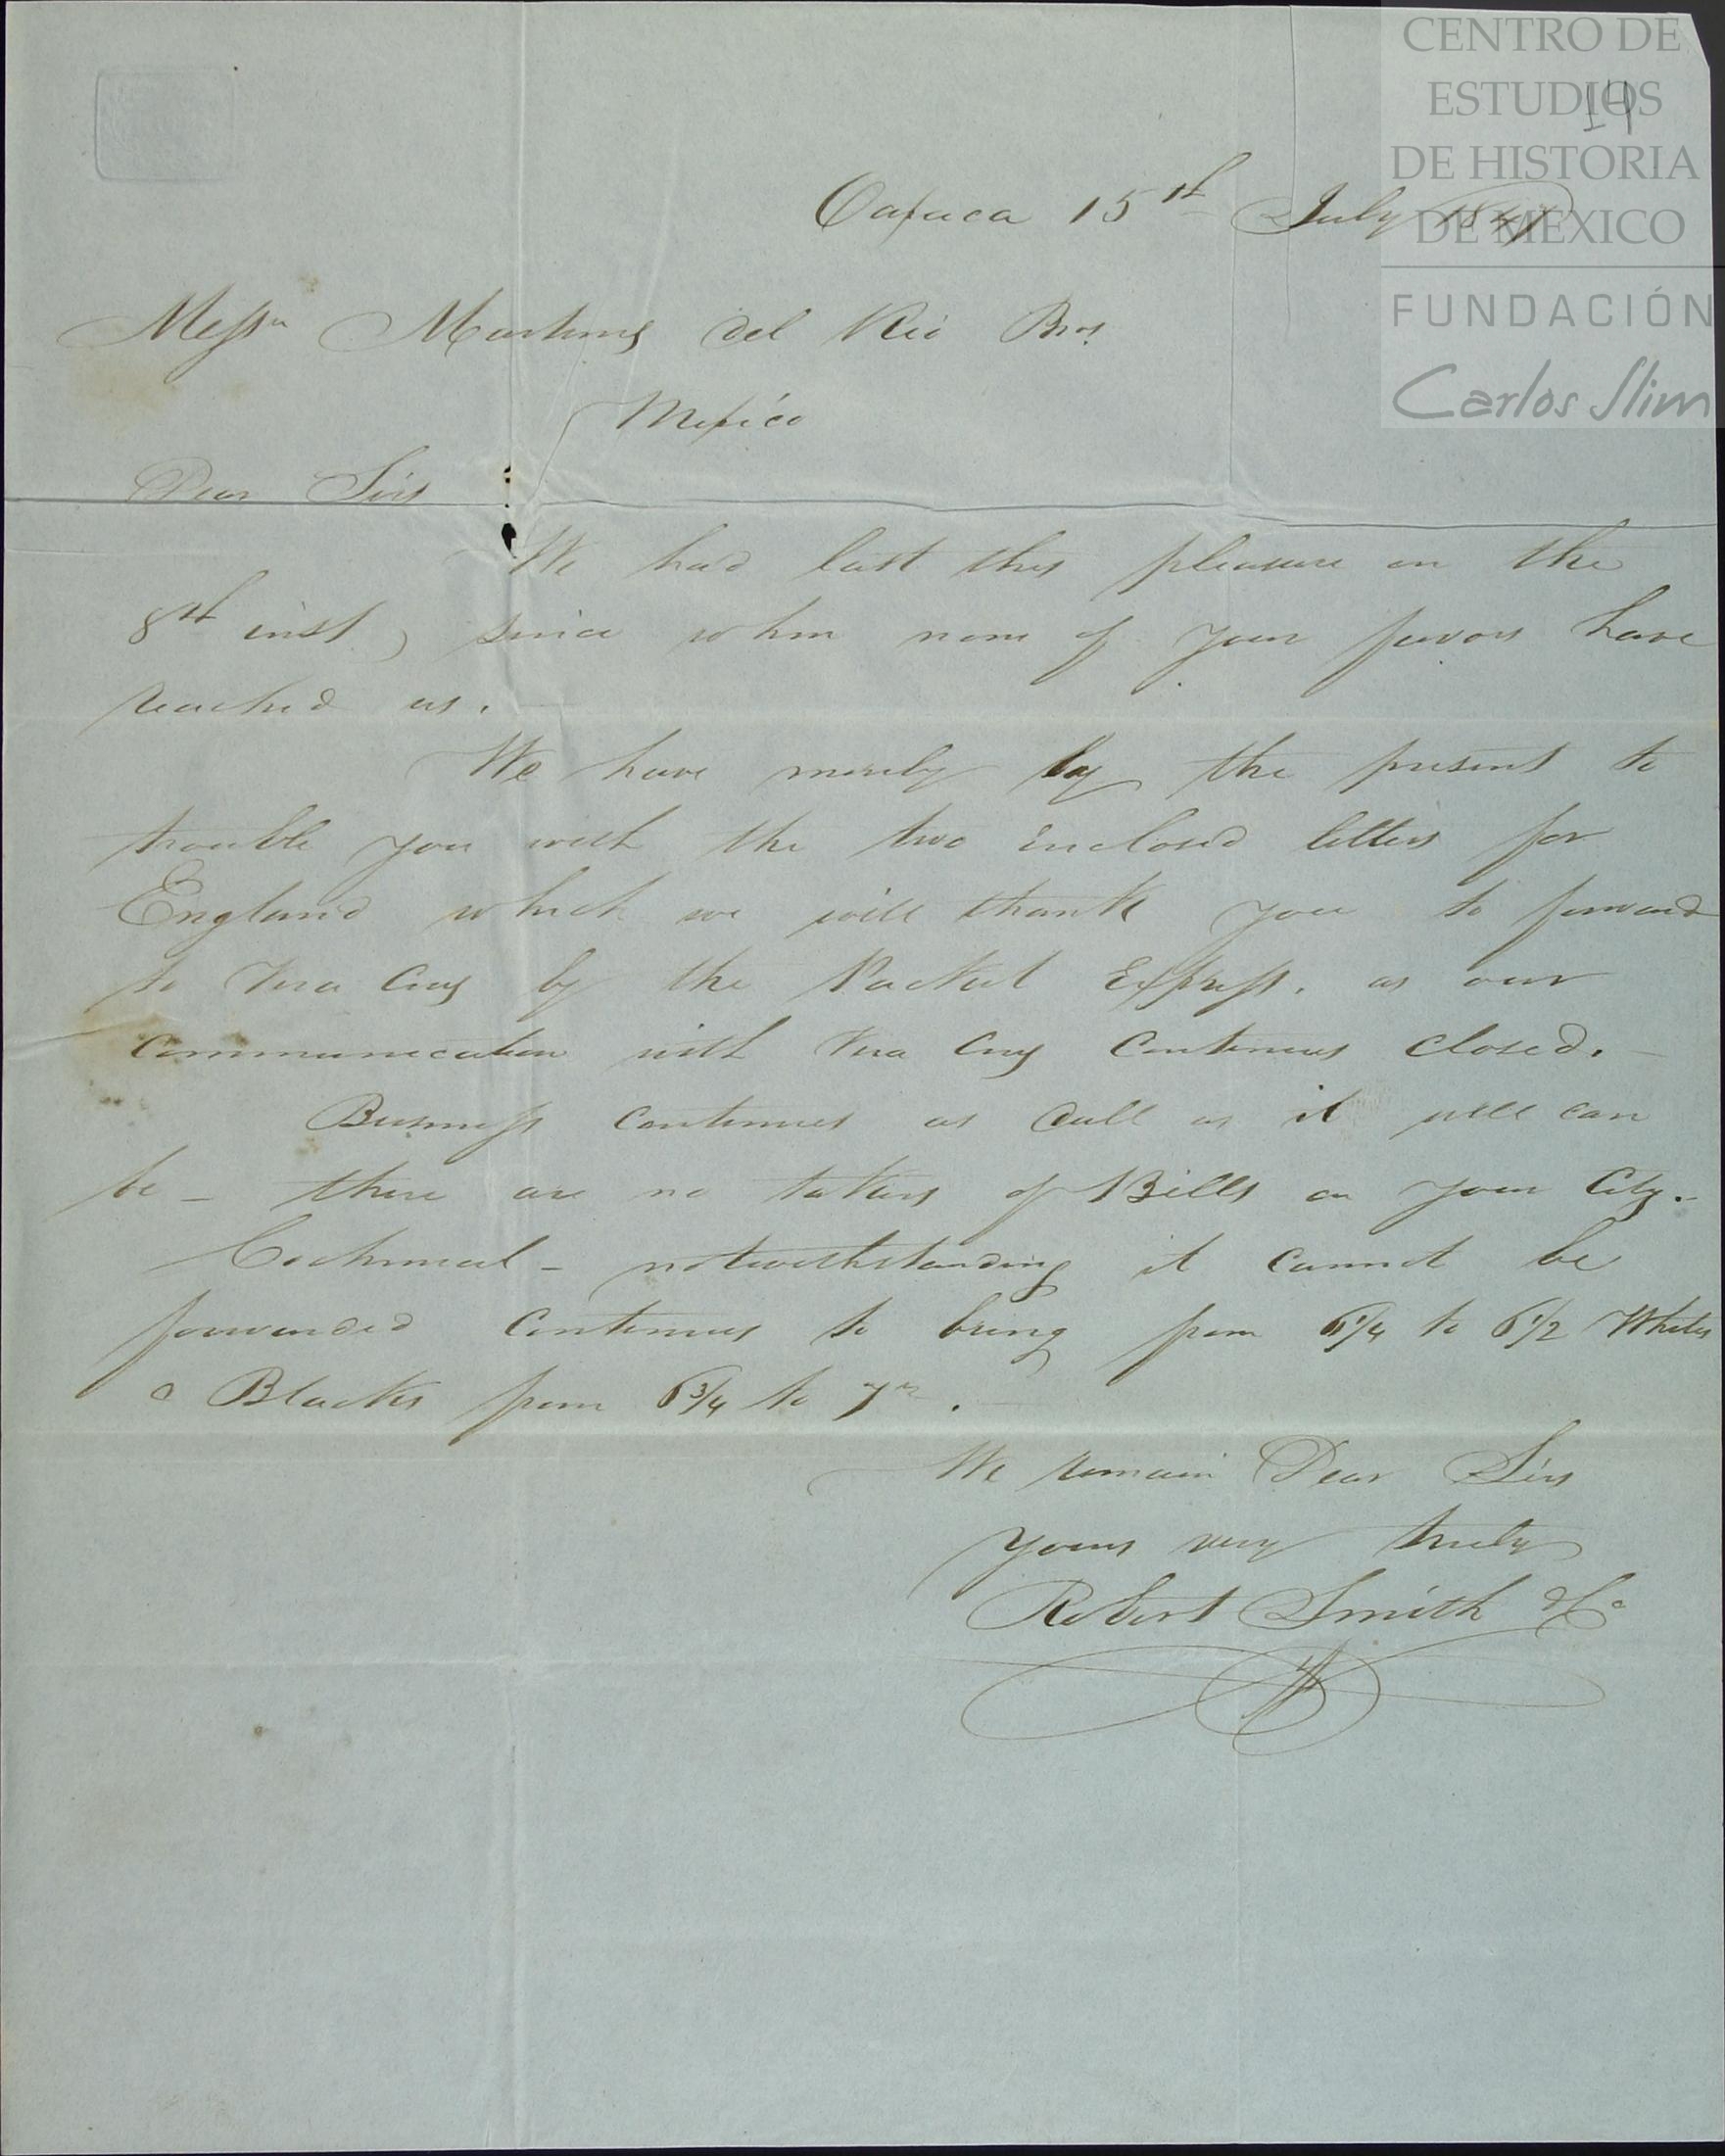 CENTRO DE
ESTUDIOS
DE HISTORIA
DE MÉXICO
FUNDACIÓN
Carlos Slim
14
Oaxaca 15th July 1847
Messrs Martinez del Rio Bros
Mexico
Dear Sirs
We had last this pleasure on the
8th inst, since when none of your favors have
reached us.
We have merely by the present to
trouble you with the two enclosed letters for
England which we will thank you to forward
to Vera Cruz by the Packet Express. as our
communication with Vera Cruz continues closed.
Business continues as dull as it well can
be - there are no takers of Bills on your City.
Cochineal - notwithstanding it cannot be
forwarded continues to bring from 6 1/4 to 6 1/2 Whites
& Blacks from 6 3/4 to 7rs.
We remain Dear Sirs
Yours very truly
Robert Smith & Co